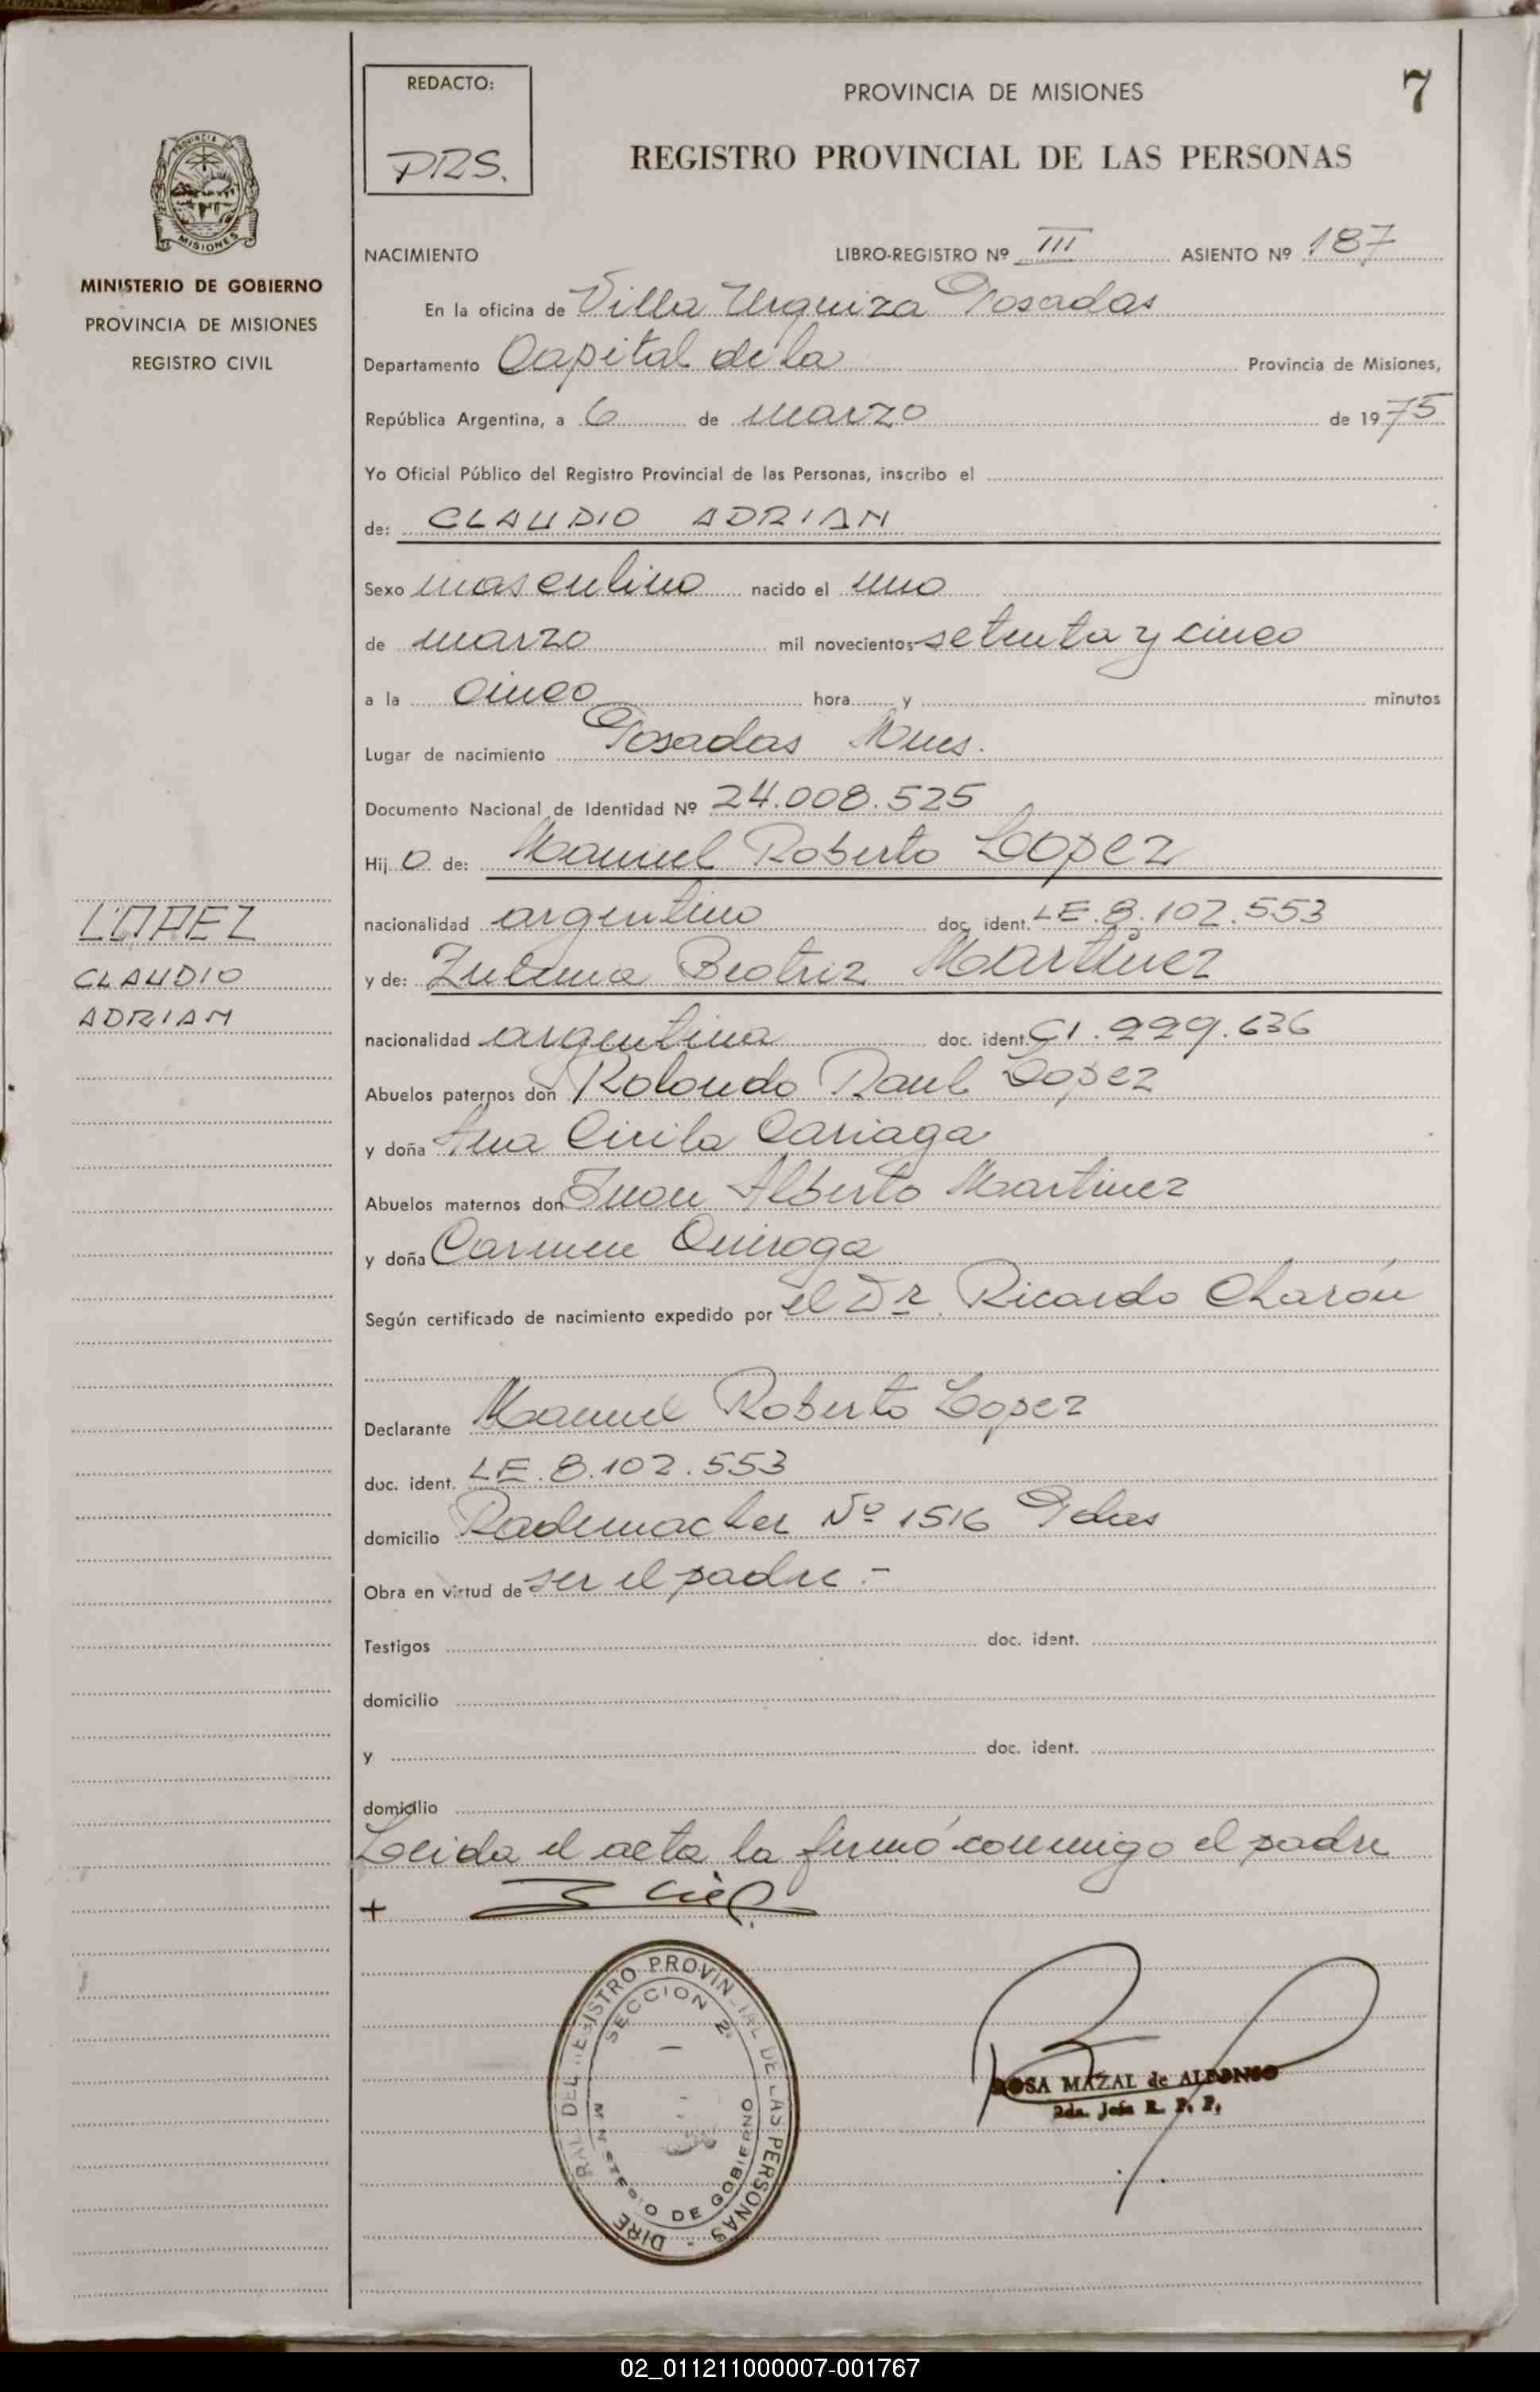 REDACTO:
PRS.
PROVINCIA DE MISIONES
7
REGISTRO PROVINCIAL DE LAS PERSONAS
PROVINCIA DE
MISIONES
MINISTERIO DE GOBIERNO
PROVINCIA DE MISIONES
REGISTRO CIVIL
NACIMIENTO LIBRO-REGISTRO Nº III ASIENTO Nº 187
En la oficina de Villa Urquiza Posadas
Departamento Capital de la Provincia de Misiones,
República Argentina, a 6 de marzo de 1975
Yo Oficial Público del Registro Provincial de las Personas, inscribo el
de: CLAUDIO ADRIAN
Sexo masculino nacido el uno
de marzo mil novecientos setenta y cinco
a la cinco hora y minutos
Lugar de nacimiento Posadas Mnes.
Documento Nacional de Identidad Nº 24.008.525
Hij o de: Manuel Roberto Lopez
nacionalidad argentino doc. ident. LE.8.102.553
y de: Zulema Beatriz Martinez
nacionalidad argentina doc. ident. CI.999.636
Abuelos paternos don Rolando Raul Lopez
y doña Ana Cirila Cariaga
Abuelos maternos don Juan Alberto Martinez
y doña Carmen Quiroga
Según certificado de nacimiento expedido por el Dr. Ricardo Charón
LOPEZ
CLAUDIO
ADRIAN
Declarante Manuel Roberto Lopez
doc. ident. LE.8.102.553
domicilio Rademacher Nº 1516 Pdas
Obra en virtud de ser el padre.-
Testigos doc. ident.
domicilio
y doc. ident.
domicilio
Leida el acta la firmó conmigo el padre
+
DIRE RAL DEL REGISTRO PROVINCIAL DE LAS PERSONAS
SECCION 2ª
MINISTERIO DE GOBIERNO
ROSA MAZAL de ALFONSO
2da. Jefa R. P. P.
02_011211000007-001767